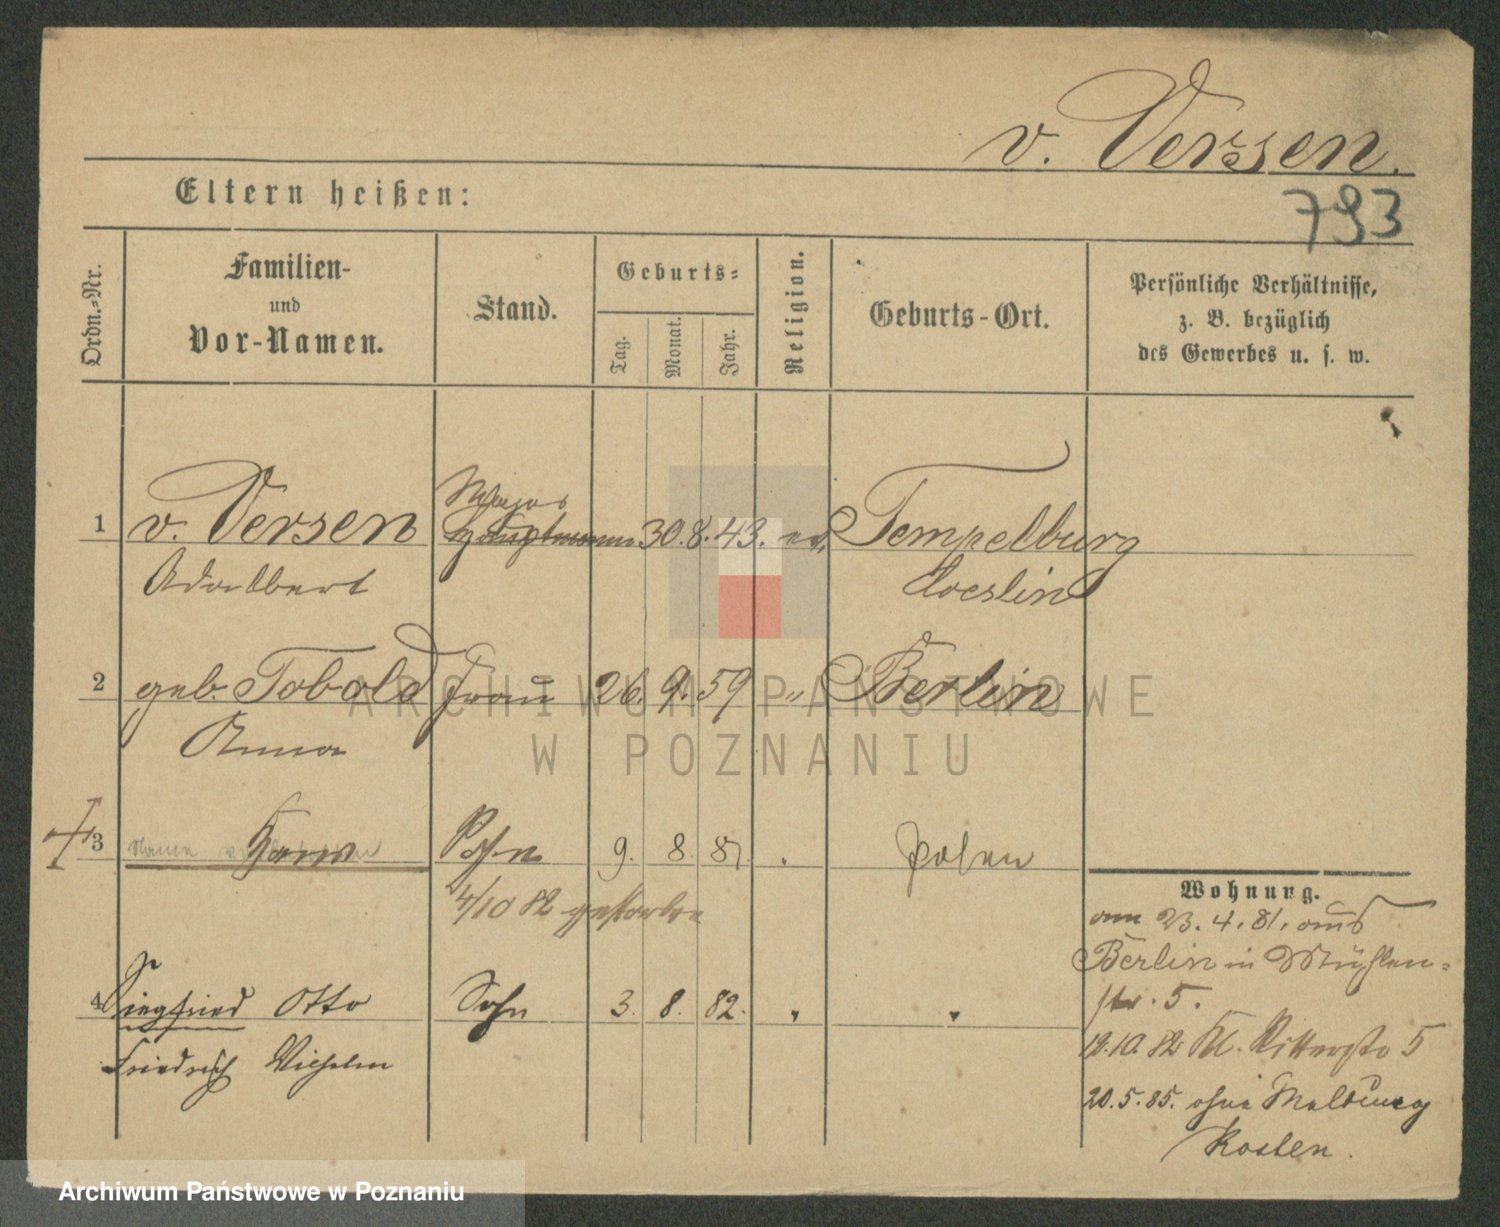 v. Versen.
793
Eltern heißen:
Ordn.-Nr.
Familien-
und
Vor-Namen.
Stand.
Geburts-
Tag.
Monat.
Jahr.
Religion.
Geburts-Ort.
Persönliche Verhältnisse,
z. B. bezüglich
des Gewerbes u. s. w.
Major
1 v. Versen Hauptmann 30. 8. 43. ev. Tempelburg
Adalbert Coeslin
2 geb. Tobold Frau 26. 9. 59 " Berlin
Anna
3 Hans Sohn 9. 8. 81. " Posen
4/10 82 gestorben
4 Siegfried Otto Sohn 3. 8. 82. " "
Friedrich Wilhelm
Wohnung.
am 23. 4. 81. aus
Berlin in Mühlen-
str. 5.
12.10 82 Kl. Ritterstr 5
20.5.85. ohne Meldung
Kosten.
ARCHIWUM PAŃSTWOWE
W POZNANIU
Archiwum Państwowe w Poznaniu